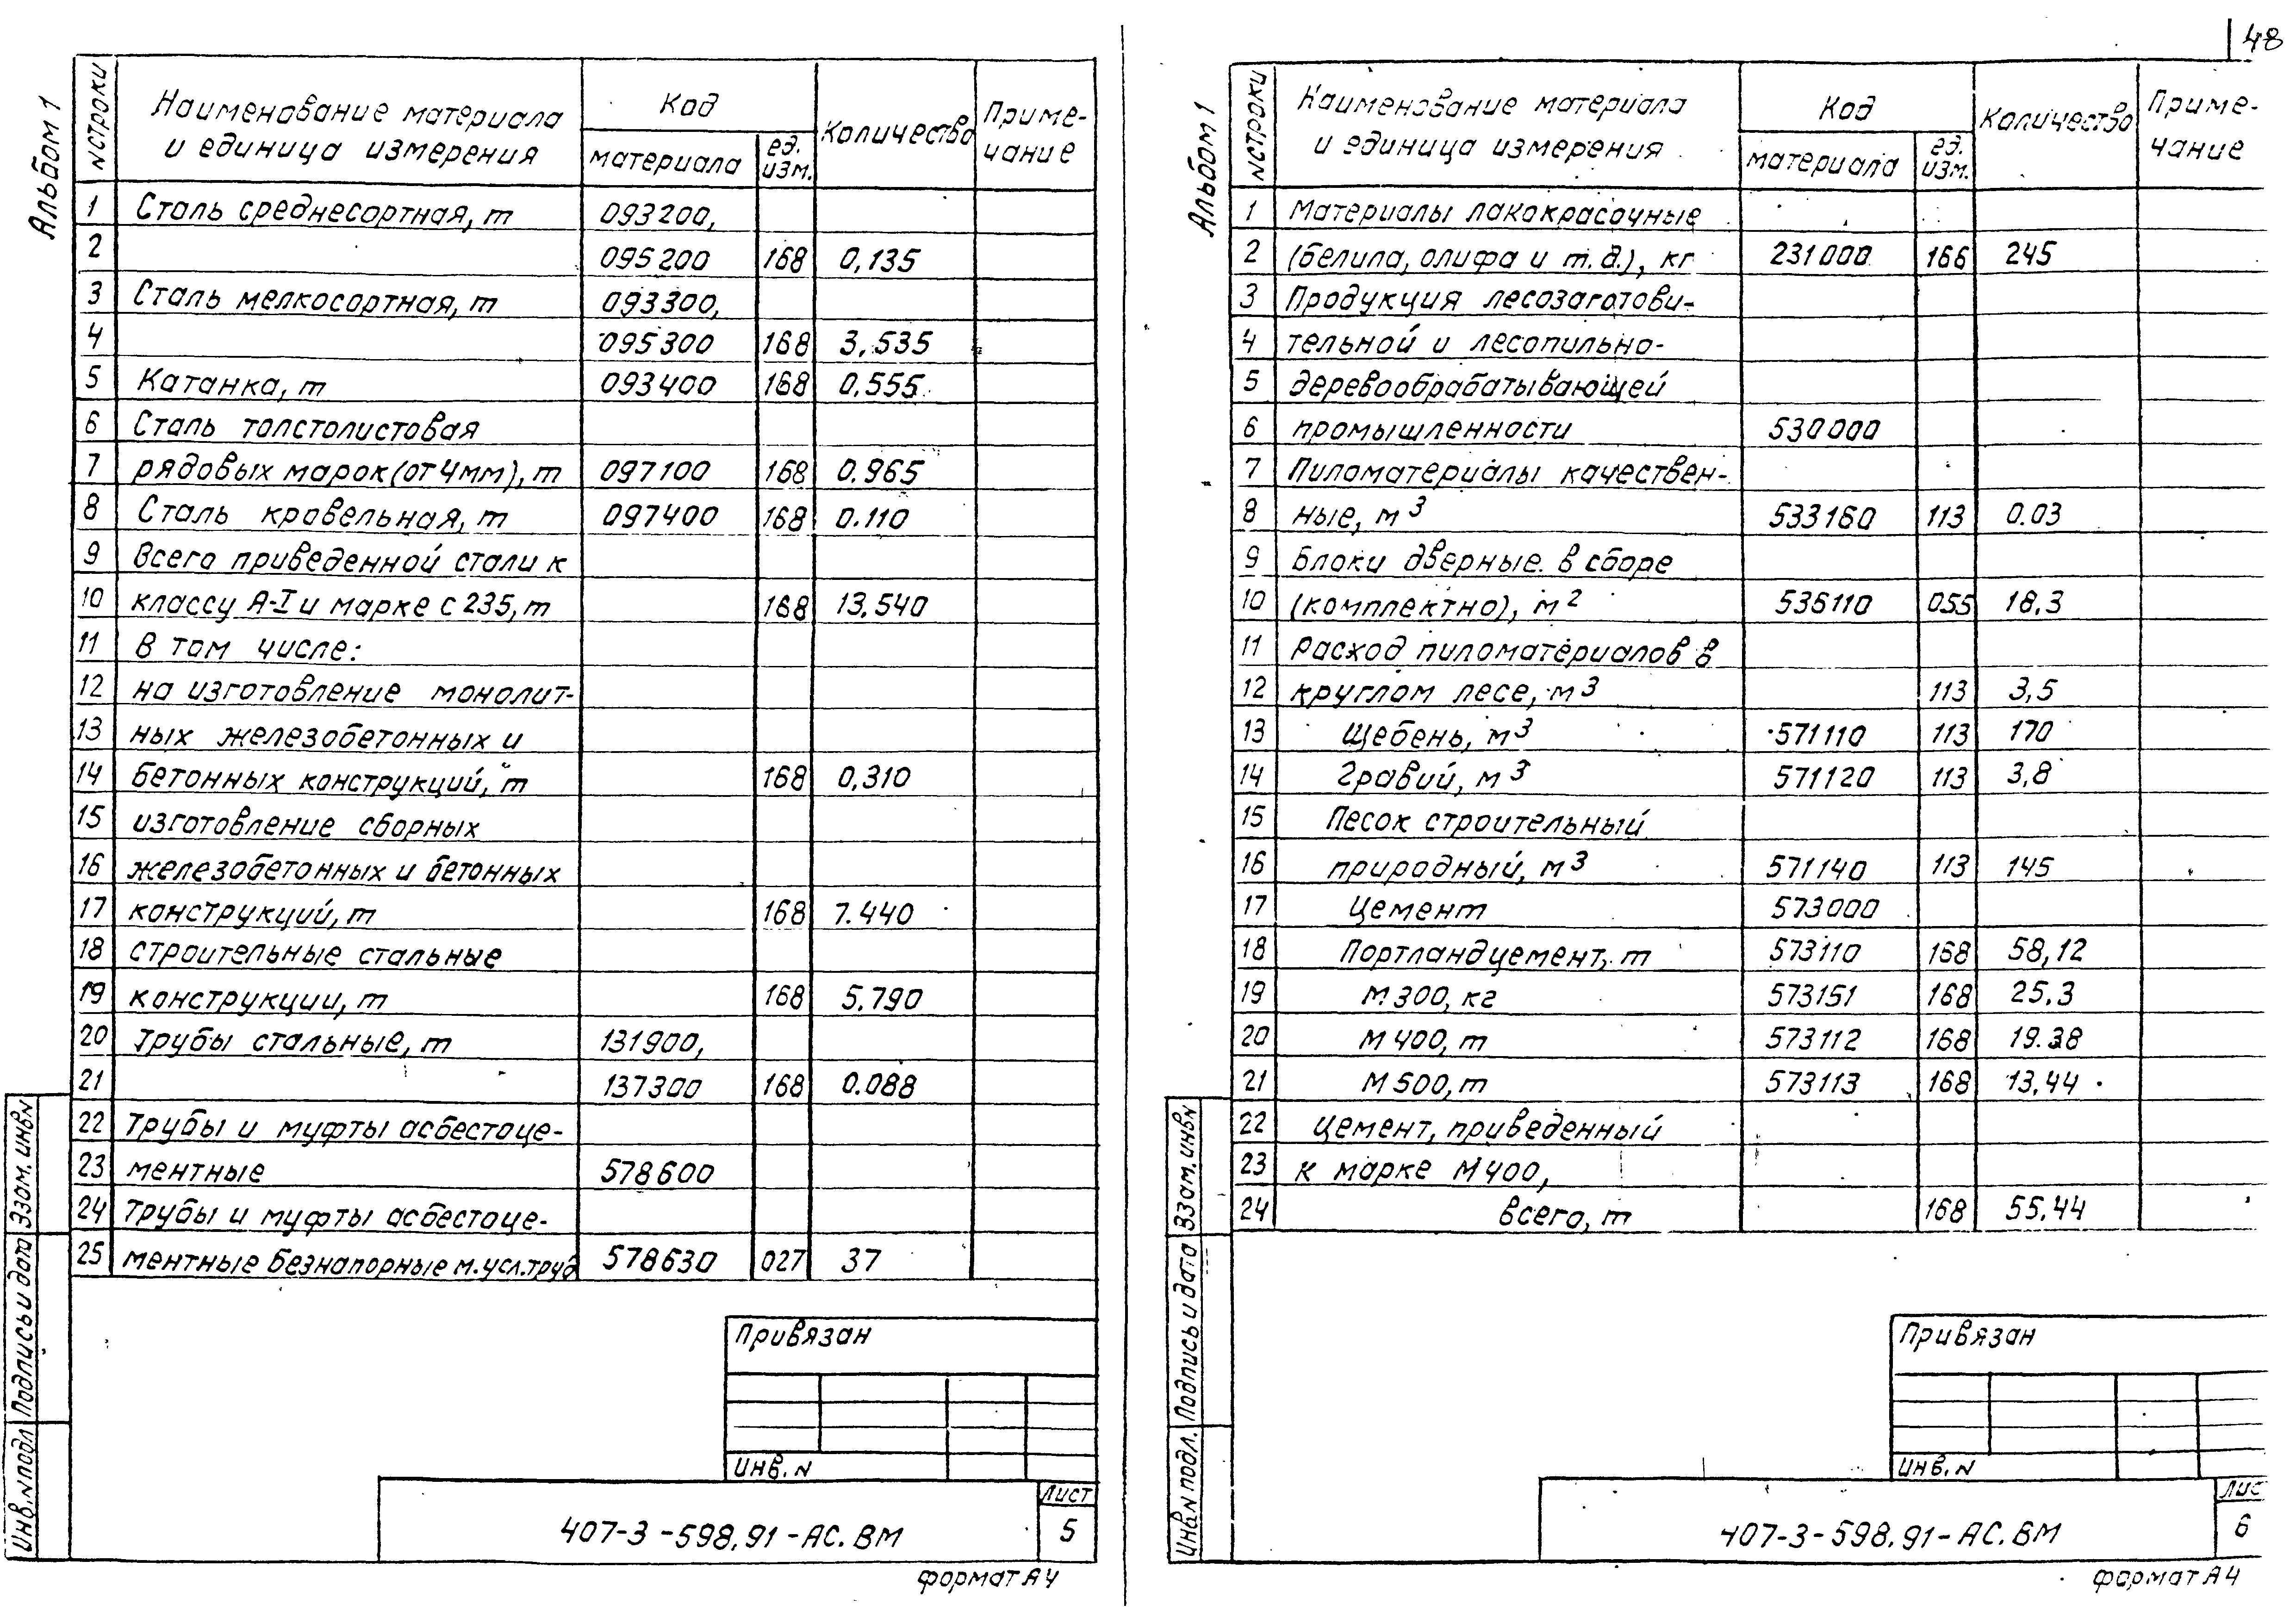 48
Альбом 1
N строки Наименование материала и единица измерения Код материала ед. изм. Количество Приме-чание
1 Сталь среднесортная, т 093200,
2 095200 168 0,135
3 Сталь мелкосортная, т 093300,
4 095300 168 3,535
5 Катанка, т 093400 168 0,555
6 Сталь толстолистовая
7 рядовых марок (от 4мм), т 097100 168 0.965
8 Сталь кровельная, т 097400 168 0.110
9 Всего приведенной стали к
10 классу А-I и марке С 235, т 168 13,540
11 В том числе:
12 на изготовление монолит-
13 ных железобетонных и
14 бетонных конструкций, т 168 0,310
15 изготовление сборных
16 железобетонных и бетонных
17 конструкций, т 168 7.440
18 строительные стальные
19 конструкции, т 168 5.790
20 Трубы стальные, т 131900,
21 137300 168 0.088
22 Трубы и муфты асбестоце-
23 ментные 578600
24 Трубы и муфты асбестоце-
25 ментные безнапорные м.усл.труб 578630 027 37
Привязан
Инв. N
407-3-598.91-АС.ВМ
Лист
5
формат А4
Инв. N подл. Подпись и дата Взам. инв N
Альбом 1
N строки Наименование материала и единица измерения Код материала ед. изм. Количество Приме-чание
1 Материалы лакокрасочные
2 (белила, олифа и т.д.), кг 231000 166 245
3 Продукция лесозаготови-
4 тельной и лесопильно-
5 деревообрабатывающей
6 промышленности 530000
7 Пиломатериалы качествен-
8 ные, м3 533160 113 0.03
9 Блоки дверные в сборе
10 (комплектно), м2 536110 055 18,3
11 Расход пиломатериалов в
12 круглом лесе, м3 113 3,5
13 Щебень, м3 571110 113 170
14 Гравий, м3 571120 113 3,8
15 Песок строительный
16 природный, м3 571140 113 145
17 Цемент 573000
18 Портландцемент, т 573110 168 58,12
19 М 300, кг 573151 168 25.3
20 М 400, т 573112 168 19.38
21 М 500, т 573113 168 13,44
22 Цемент, приведенный
23 к марке М 400,
24 всего, т 168 55.44
Привязан
Инв. N
407-3-598.91-АС.ВМ
Лис
6
формат А4
Инв. N подл. Подпись и дата Взам. инв N